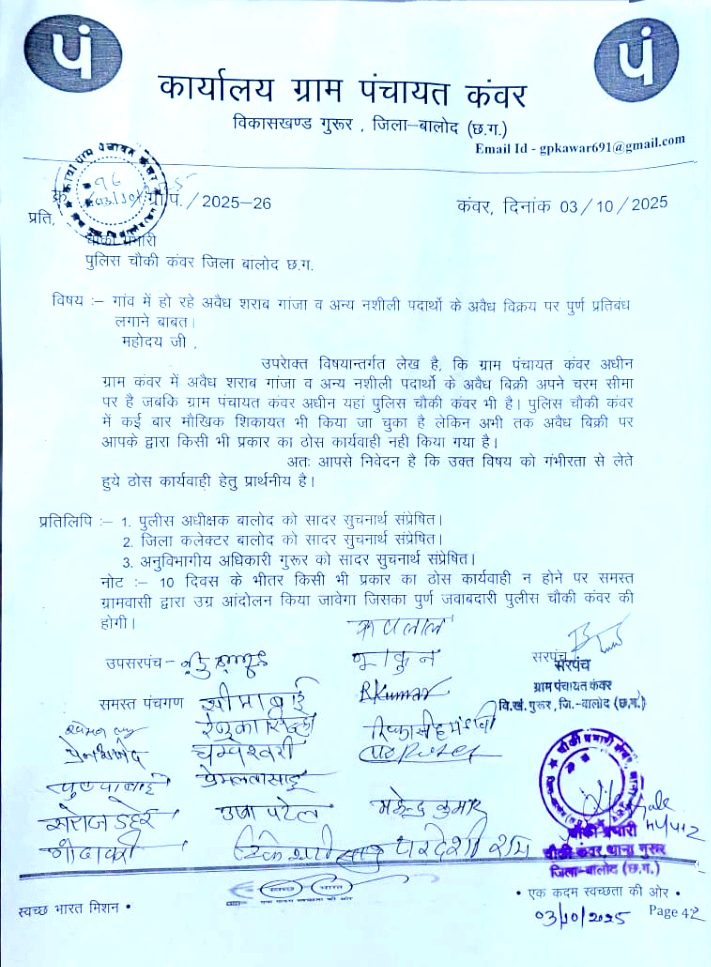 पं
पं
कार्यालय ग्राम पंचायत कंवर
विकासखण्ड गुरूर , जिला–बालोद (छ.ग.)
Email Id - gpkawar691@gmail.com
क्र. 96 /ग्रा.पं. / 2025–26
कंवर, दिनांक 03 / 10 / 2025
प्रति,
चौकी प्रभारी
पुलिस चौकी कंवर जिला बालोद छ.ग.
विषय :– गांव में हो रहे अवैध शराब गांजा व अन्य नशीली पदार्थो के अवैध विक्रय पर पुर्ण प्रतिबंध
लगाने बाबत।
महोदय जी ,
उपरोक्त विषयान्तर्गत लेख है, कि ग्राम पंचायत कंवर अधीन
ग्राम कंवर में अवैध शराब गांजा व अन्य नशीली पदार्थो के अवैध बिक्री अपने चरम सीमा
पर है जबकि ग्राम पंचायत कंवर अधीन यहां पुलिस चौकी कंवर भी है। पुलिस चौकी कंवर
में कई बार मौखिक शिकायत भी किया जा चुका है लेकिन अभी तक अवैध बिक्री पर
आपके द्वारा किसी भी प्रकार का ठोस कार्यवाही नही किया गया है।
अतः आपसे निवेदन है कि उक्त विषय को गंभीरता से लेते
हुये ठोस कार्यवाही हेतु प्रार्थनीय है।
प्रतिलिपि :– 1. पुलीस अधीक्षक बालोद को सादर सुचनार्थ संप्रेषित।
2. जिला कलेक्टर बालोद को सादर सुचनार्थ संप्रेषित।
3. अनुविभागीय अधिकारी गुरूर को सादर सुचनार्थ संप्रेषित।
नोट :– 10 दिवस के भीतर किसी भी प्रकार का ठोस कार्यवाही न होने पर समस्त
ग्रामवासी द्वारा उग्र आंदोलन किया जावेगा जिसका पुर्ण जवाबदारी पुलीस चौकी कंवर की
होगी।
उपसरपंच –
सरपंच
सरपंच
ग्राम पंचायत कंवर
वि.खं. गुरूर, जि.-बालोद (छ.ग.)
समस्त पंचगण सीमाबाई RKumar
चम्पेश्वरी
पुण्याबाई प्रेमलता साहू
सरोज डहरे उषा पटेल महेन्द्र कुमार
गोदावरी परदेशी राम
चौकी प्रभारी
चौकी कंवर, थाना गुरूर
जिला-बालोद (छ.ग.)
स्वच्छ भारत मिशन •
• एक कदम स्वच्छता की ओर •
03/10/2025
Page 42